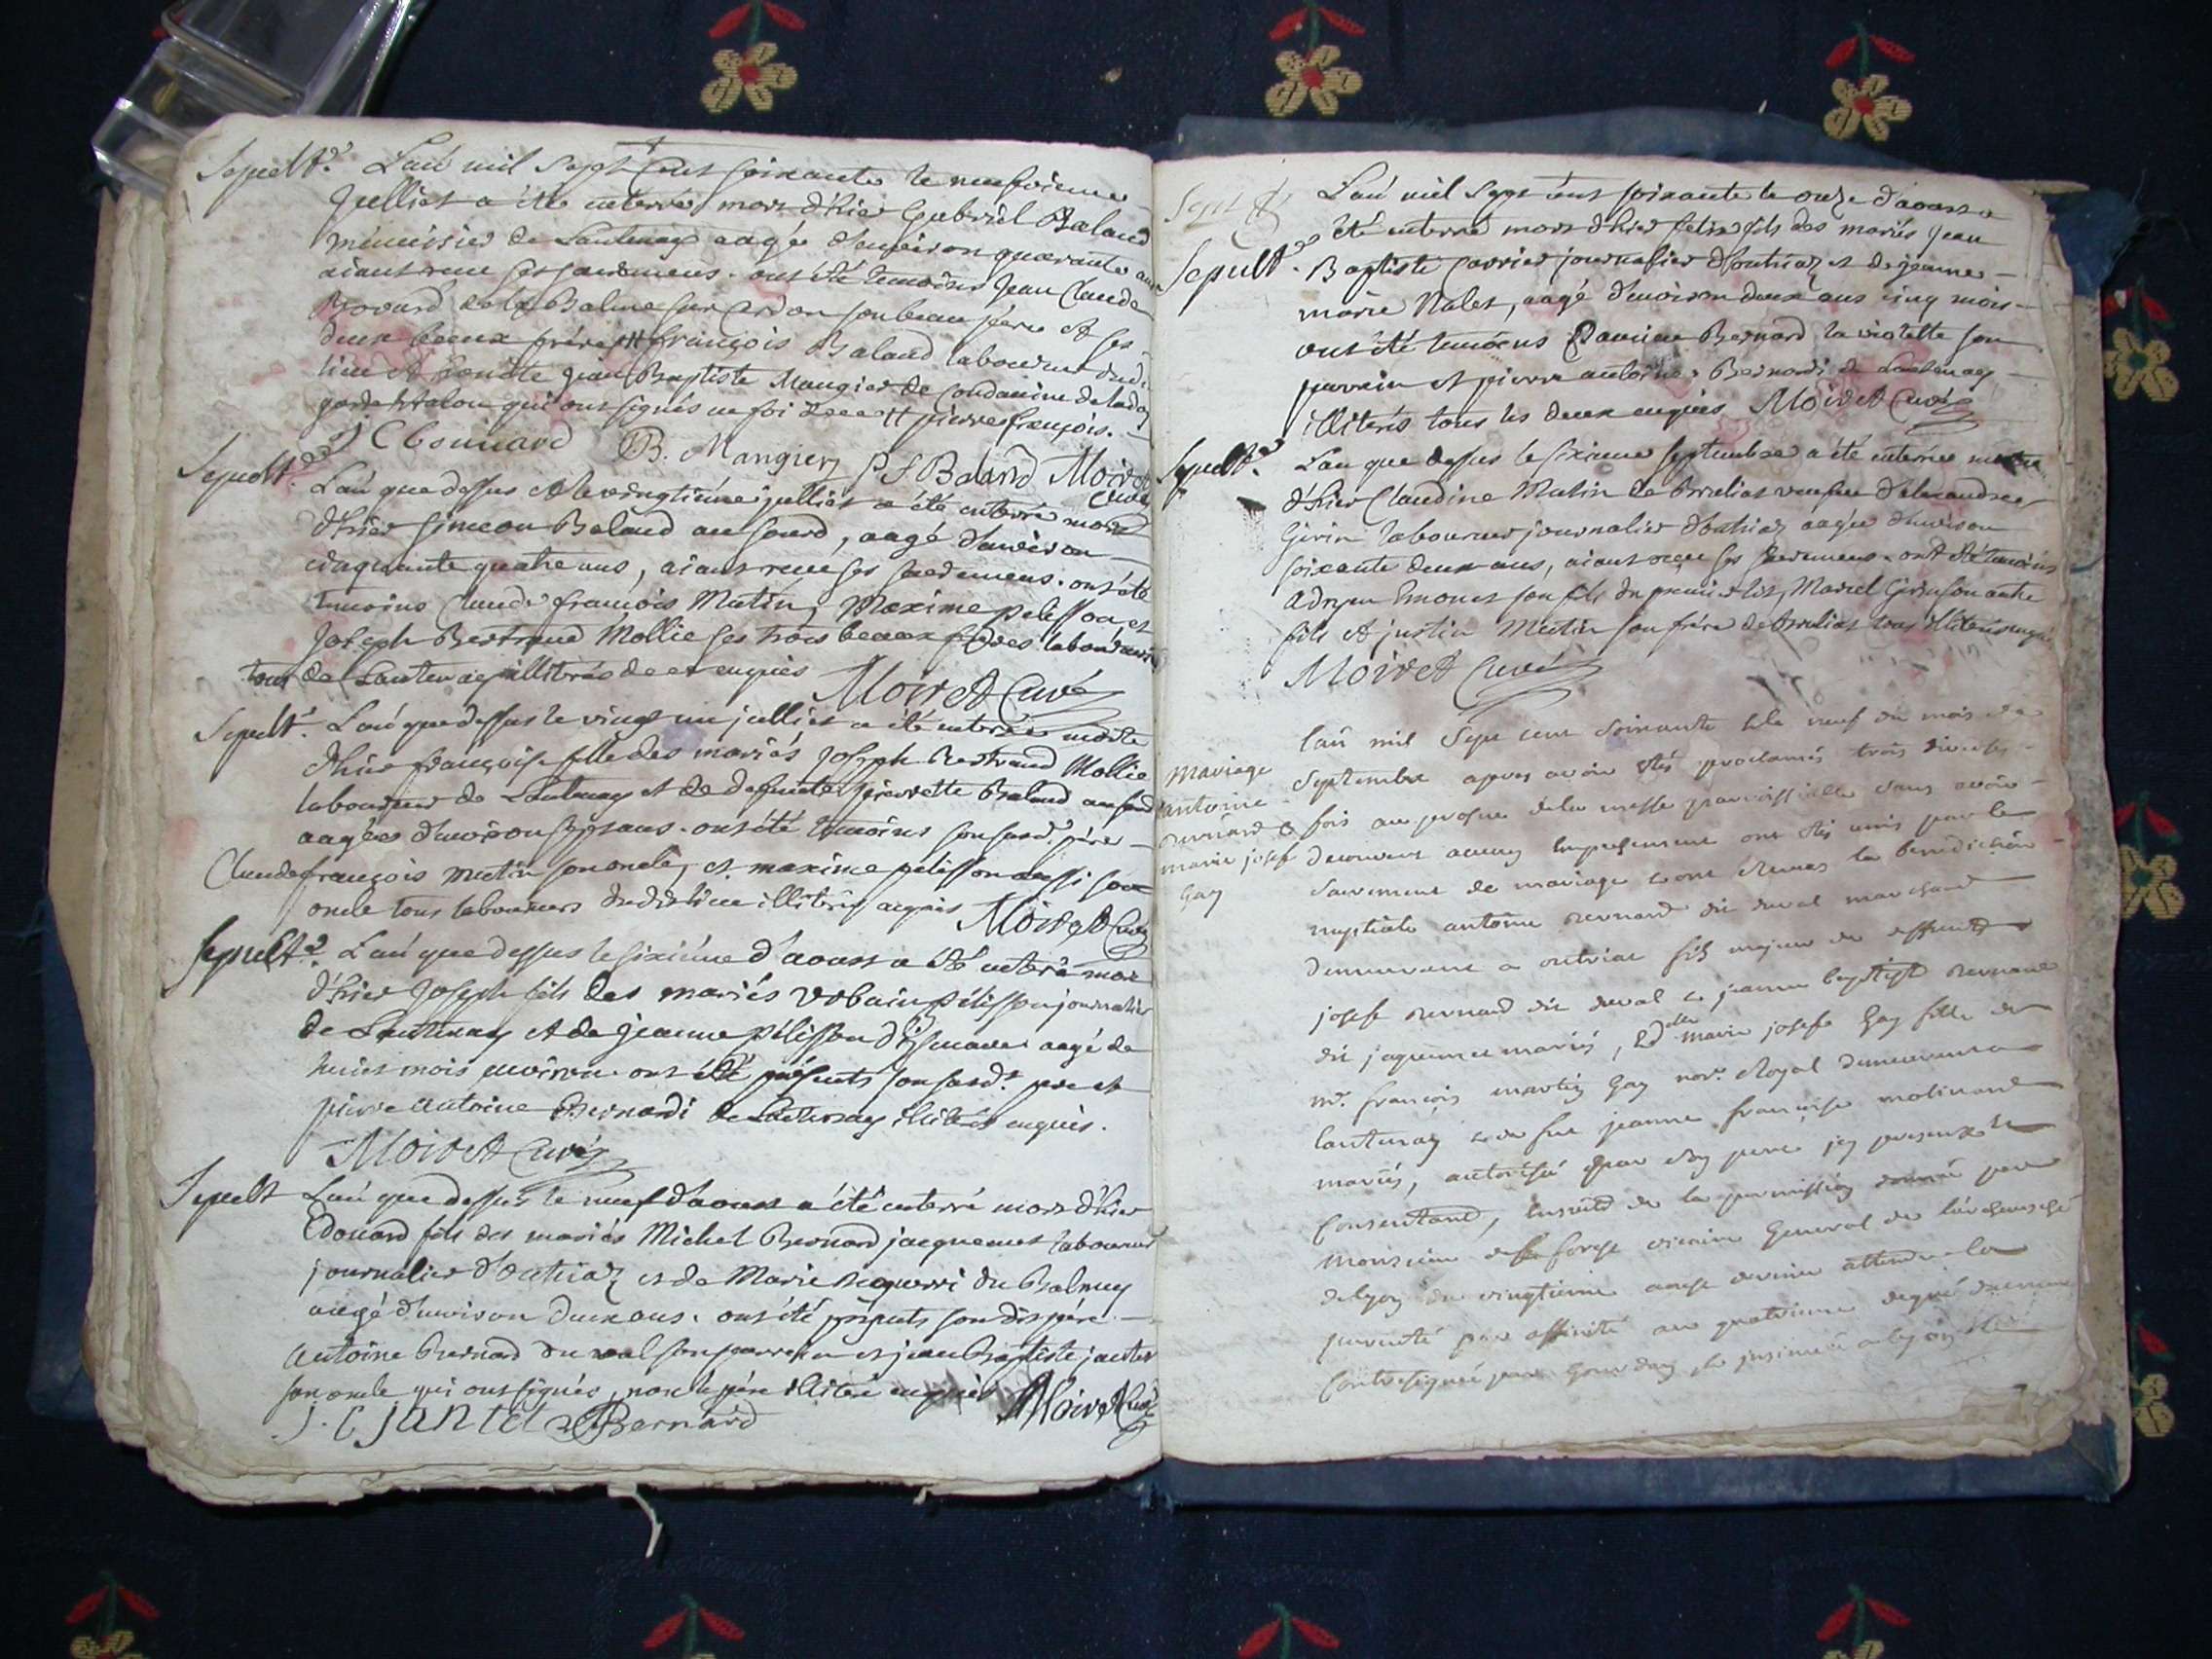 Sepult.e L'an mil sept cent soixante le neufvieme
Julliet a été enterré mort d'hier Gabriel Baland
menuisier de Lantenay aagé d'environ quarante ans
aiant receu ses sacremens. ont été temoins Jean Claude
Bovard de la Balme sur Cerdon son beau père et ses
deux beaux frères # françois Baland laboureur dudit
lieu et Jean Baptiste Mangier de Condamine de la doy
qui ont signés en foi de ce # pierre françois.
J C Bouvard B. Mangier P f Baland Moiret
Curé
Sepult.e L'an que dessus et le vingtième julliet a été enterré mort
d'hier simeon Baland au sourd, aagé d'environ
cinquante quatre ans, aiant receu ses sacremens. ont été
temoins Claude françois Mutin, Maxime pelisson et
Joseph Bertrand Mollie ses trois beaux freres laboureurs
tous de Lantenay illiterés de ce enquis Moiret Curé
Sepult.e L'an que dessus le vingt un julliet a été enterrée morte
d'hier françoise fille des mariés Joseph Bertrand Mollie
laboureur de Lantenay et de defunte pierrette Baland au sourd
aagée d'environ sept ans. ont été temoins son susd. père
Claude françois Mutin son oncle, et maxime pelisson aussi son
oncle tous laboureurs dudit lieu illiterés enquis Moiret Curé
Sepult.e L'an que dessus le sixième d'aoust a été enterré mort
d'hier Joseph fils des mariés Urbain Pélisson journalier
de Lantenay et de Jeanne Pélisson d'Izenave aagé de
huit mois environ. ont été présents son susd.t pere et
pierre antoine Bernardi de Lantenay illiterés enquis.
Moiret Curé
Sepult L'an que dessus le neuf d'aoust a été enterré mort d'hier
Edouard fils des mariés Michel Bernard jacquemet laboureur
journalier d'outriaz et de Marie du Balmey
aagé d'environ deux ans. ont été présents son dit père
Antoine Bernard du val son parrein et jean Baptiste jantet
son oncle qui ont signés, non le père illiteré enquis Moiret Curé
J. C jantet A Bernard
Sepult
L'an mil sept cent soixante le onze d'aoust a
Sepult.e été enterré mort d'hier felix fils des mariés Jean
Baptiste Carrier journalier d'outriaz et de jeanne
marie Nalet, aagé d'environ deux ans cinq mois
ont été temoins Damien Bernard la violette son
parrein et pierre antoine Bernardi de Lantenay
illiterés tous les deux enquis Moiret Curé
Sepult.e L'an que dessus le sixieme septembre a été enterrée morte
d'hier Claudine Mutin de Bruliat veufve d'alexandre
Girin laboureur journalier d'outriaz aagée d'environ
soixante deux ans, aiant receu ses sacremens. ont été temoins
adrien Emonet son fils du premier lit, Marcel Girin son autre
fils et justin Mutin son frère de Bruliat tous illiterés enquis
Moiret Curé
mariage
antoine
bernard &
marie josefe
Gay
l'an mil sept cent soixante & le neuf du mois de
septembre apres avoir etés proclamés trois diverses
fois au prosne de la messe paroissialle sans avoir
decouvert aucun empechement ont etés unis par le
sacrement de mariage & ont receus la benediction
nuptiale antoine bernard dit duval marchand
demeurant a outriaz fils majeur de deffunts
josefe bernard dit duval & jeanne baptiste bernard
dit jaquemet mariés, & d.elle marie josefe Gay fille de
m.r françois martin Gay not.e Royal demeurant a
lantenay & de fue jeanne françoise molinard
mariés, autorisée par son pere icy present &
consentant, ensuite de la permission donnée par
monsieur de la forge vicaire General de l'archeveché
de lyon du vingtieme aoust dernier attendu la
parenté par affinité au quatrieme degré
contresignée par & jnsinuée a lyon